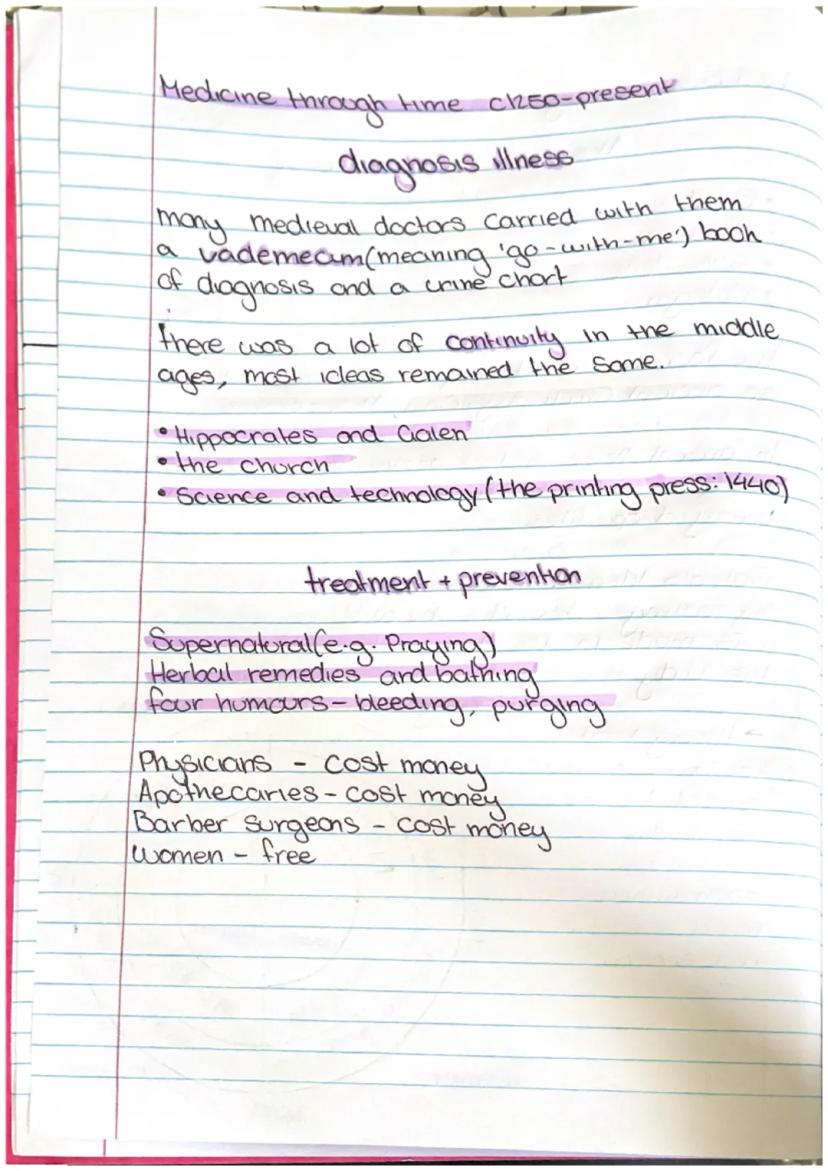 Medicine through time c1250-present
diagnosis illness
many medieval doctors carried with them
a vademecum (meaning 'go-with-me') book
of diagnosis and a urine chart
there was a lot of continuity in the middle
ages, most ideas remained the same.
• Hippocrates and Galen
• the church
• Science and technology (the printing press: 1440)
treatment + prevention
Supernatural (e.g. Praying)
Herbal remedies and bathing
four humours - bleeding, purging
Physicians - cost money
Apothecaries - cost money
Barber surgeons - cost money
women - free